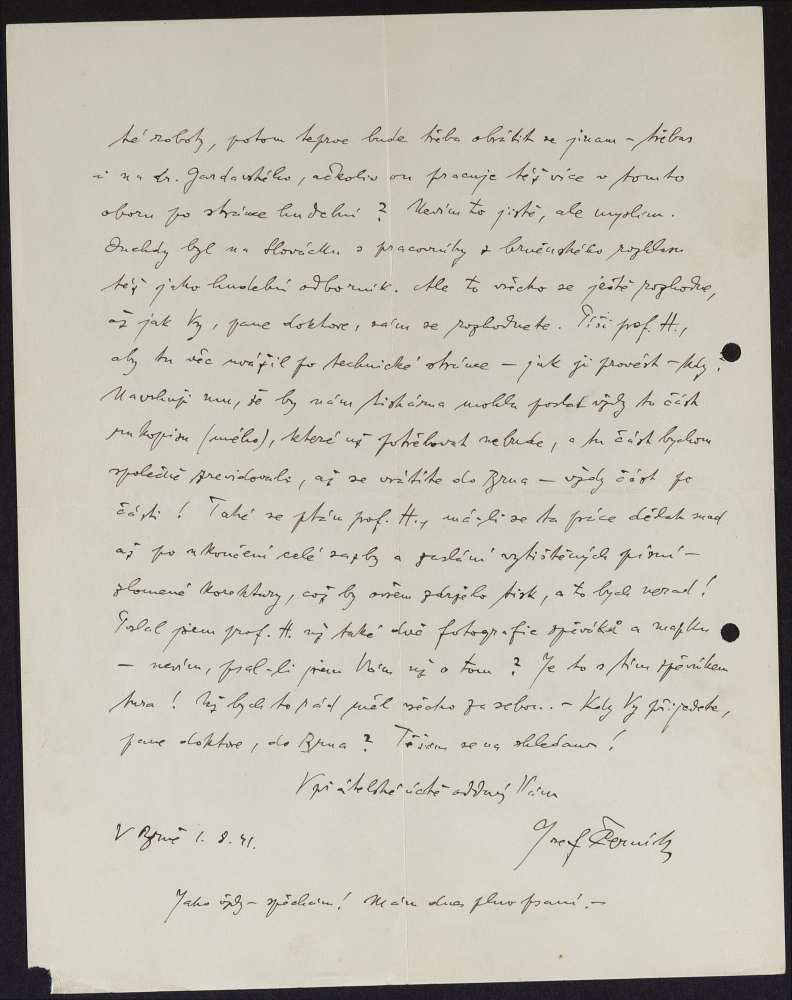 té roboty, potom teprve bude třeba obrátit se jinam – třebas
i na dr. Gardavského, ačkoliv on pracuje též více v tomto
oboru po stránce hudební? Nevím to jistě, ale myslím.
Onehdy byl na Slovácku s pracovníky z brněnského rozhlasu
též jako hudební odborník. Ale to všecko se ještě rozhodne,
až jak Vy, pane doktore, sám se rozhodnete. Píši prof. H.,
aby tu věc uvážil po technické stránce – jak ji provést – kdy?
Navrhuji mu, že by nám tiskárna mohla poslat vždy tu část
rukopisu (mého), které už potřebovat nebude, a tu část bychom
společně zrevidovali, až se vrátíte do Brna – vždy část po
části! Také se ptám prof. H., má-li se ta práce dělat snad
až po ukončení celé sazby a zaslání vytištěných písní –
zlomené korektury, což by ovšem zdrželo tisk, a to bych nerad!
Poslal jsem prof. H. už také dvě fotografie zpěváků a mapku
– nevím, psal-li jsem Vám už o tom? Je to s tím zpěvníkem
tura! Už bych to rád měl všecko za sebou.. – Kdy Vy přijedete,
pane doktore, do Brna? Těším se na shledanou!
V přátelské úctě oddaný Vám
V Brně 1. 8. 41.
Josef Černík
Jako vždy – spěchám! Mám dnes plno psaní. –